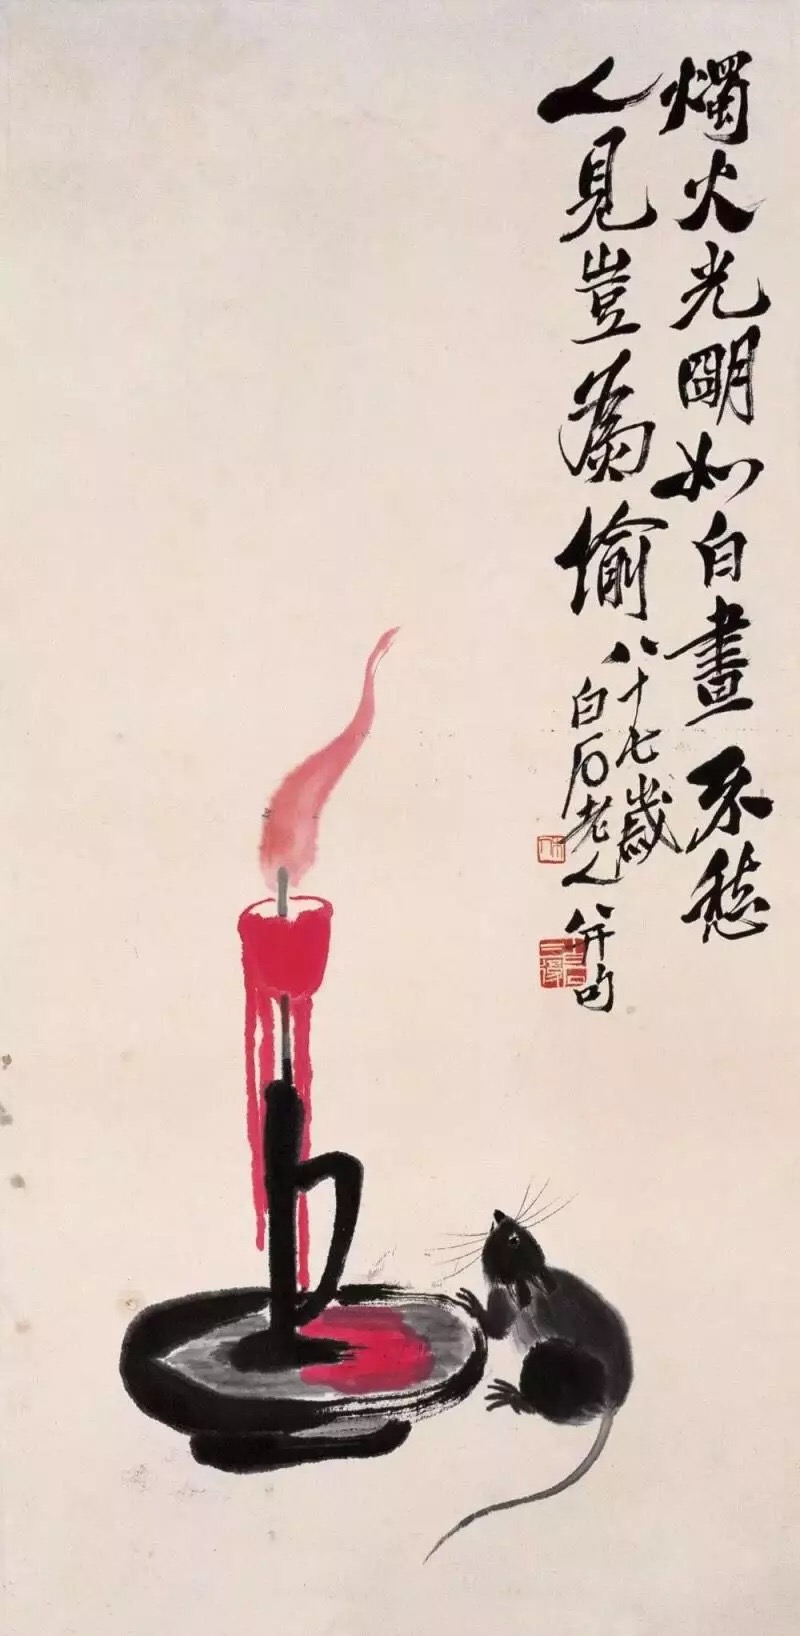 燭火光明如白晝不愁
人見豈爲偷
八十七歲
白石老人并句